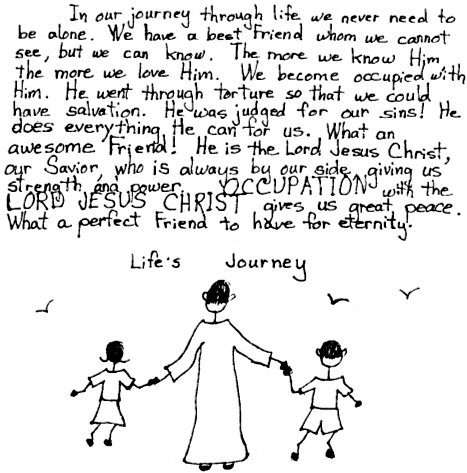 In our journey through life we never need to
be alone. We have a best Friend whom we cannot
see, but we can know. The more we know Him
the more we love Him. We become occupied with
Him. He went through torture so that we could
have salvation. He was judged for our sins! He
does everything He can for us. What an
awesome Friend! He is the Lord Jesus Christ,
our Savior, who is always by our side, giving us
strength and power. OCCUPATION with the
LORD JESUS CHRIST gives us great peace.
What a perfect Friend to have for eternity.
Life's Journey